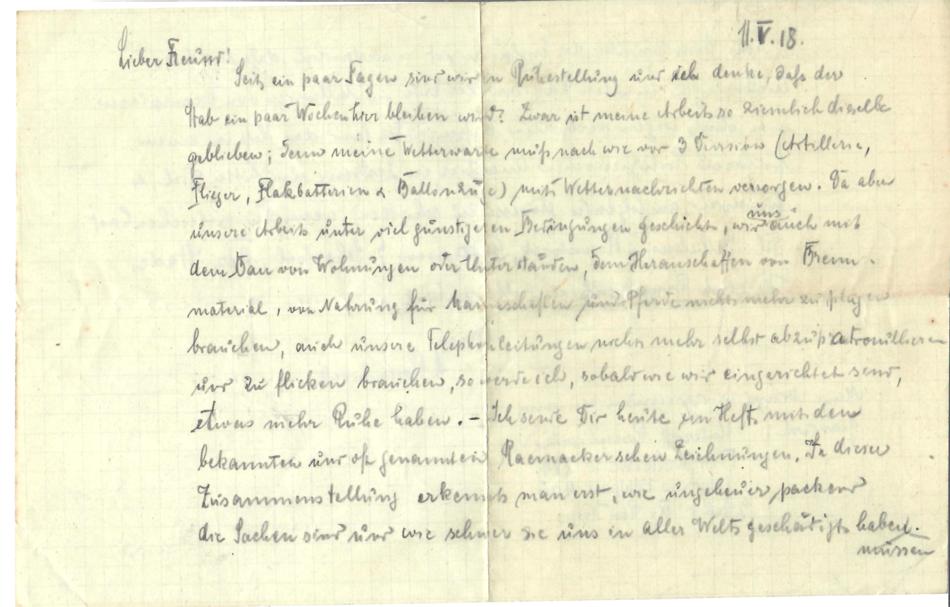 11.V.18.
Lieber Freund!
Seit ein paar Tagen sind wir in Ruhestellung und ich denke, dass der
Stab ein paar Wochen hier bleiben wird? Zwar ist meine Arbeit so ziemlich dieselbe
geblieben; denn meine Wetterwarte muß nach wie vor 3 Division (Artillerie,
Flieger, Flakbatterien & Ballonzüge) mit Wetternachrichten versorgen. Da aber
unsere Arbeit unter viel günstigeren Bedingungen geschieht, wir uns auch mit
dem Bau von Wohnungen oder Unterständen, dem Heranschaffen von Brenn-
material, von Nahrung für Mannschaften und Pferde nicht mehr zu plagen
brauchen, auch unsere Telephonleitungen nicht mehr selbst abzupatrouillieren
und zu flicken brauchen, so werde ich, sobald wie wir eingerichtet sind,
etwas mehr Ruhe haben. – Ich sende Dir heute ein Heft mit den
bekannten und oft genannten Raemaekerschen Zeichnungen. In dieser
Zusammenstellung erkennt man erst, wie ungeheuer packend
die Sachen sind und wie schwer sie uns in aller Welt geschädigt haben.
müssen